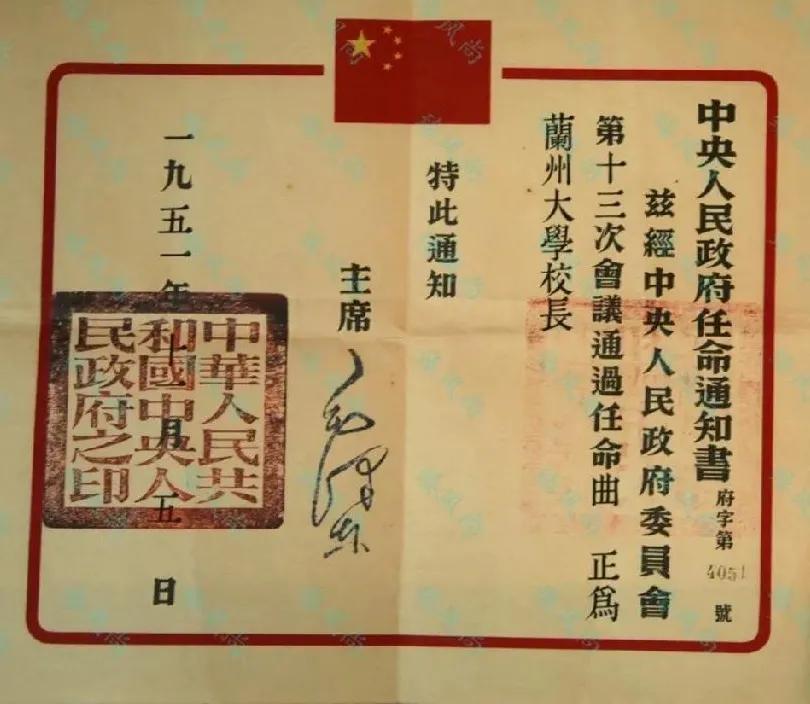 中央人民政府任命通知書
府字第4051號
茲經中央人民政府委員會
第十三次會議通過任命曲 正爲
蘭州大學校長
特此通知
主席 毛澤東
一九五一年十一月五日
中華人民共
和國中央人
民政府之印